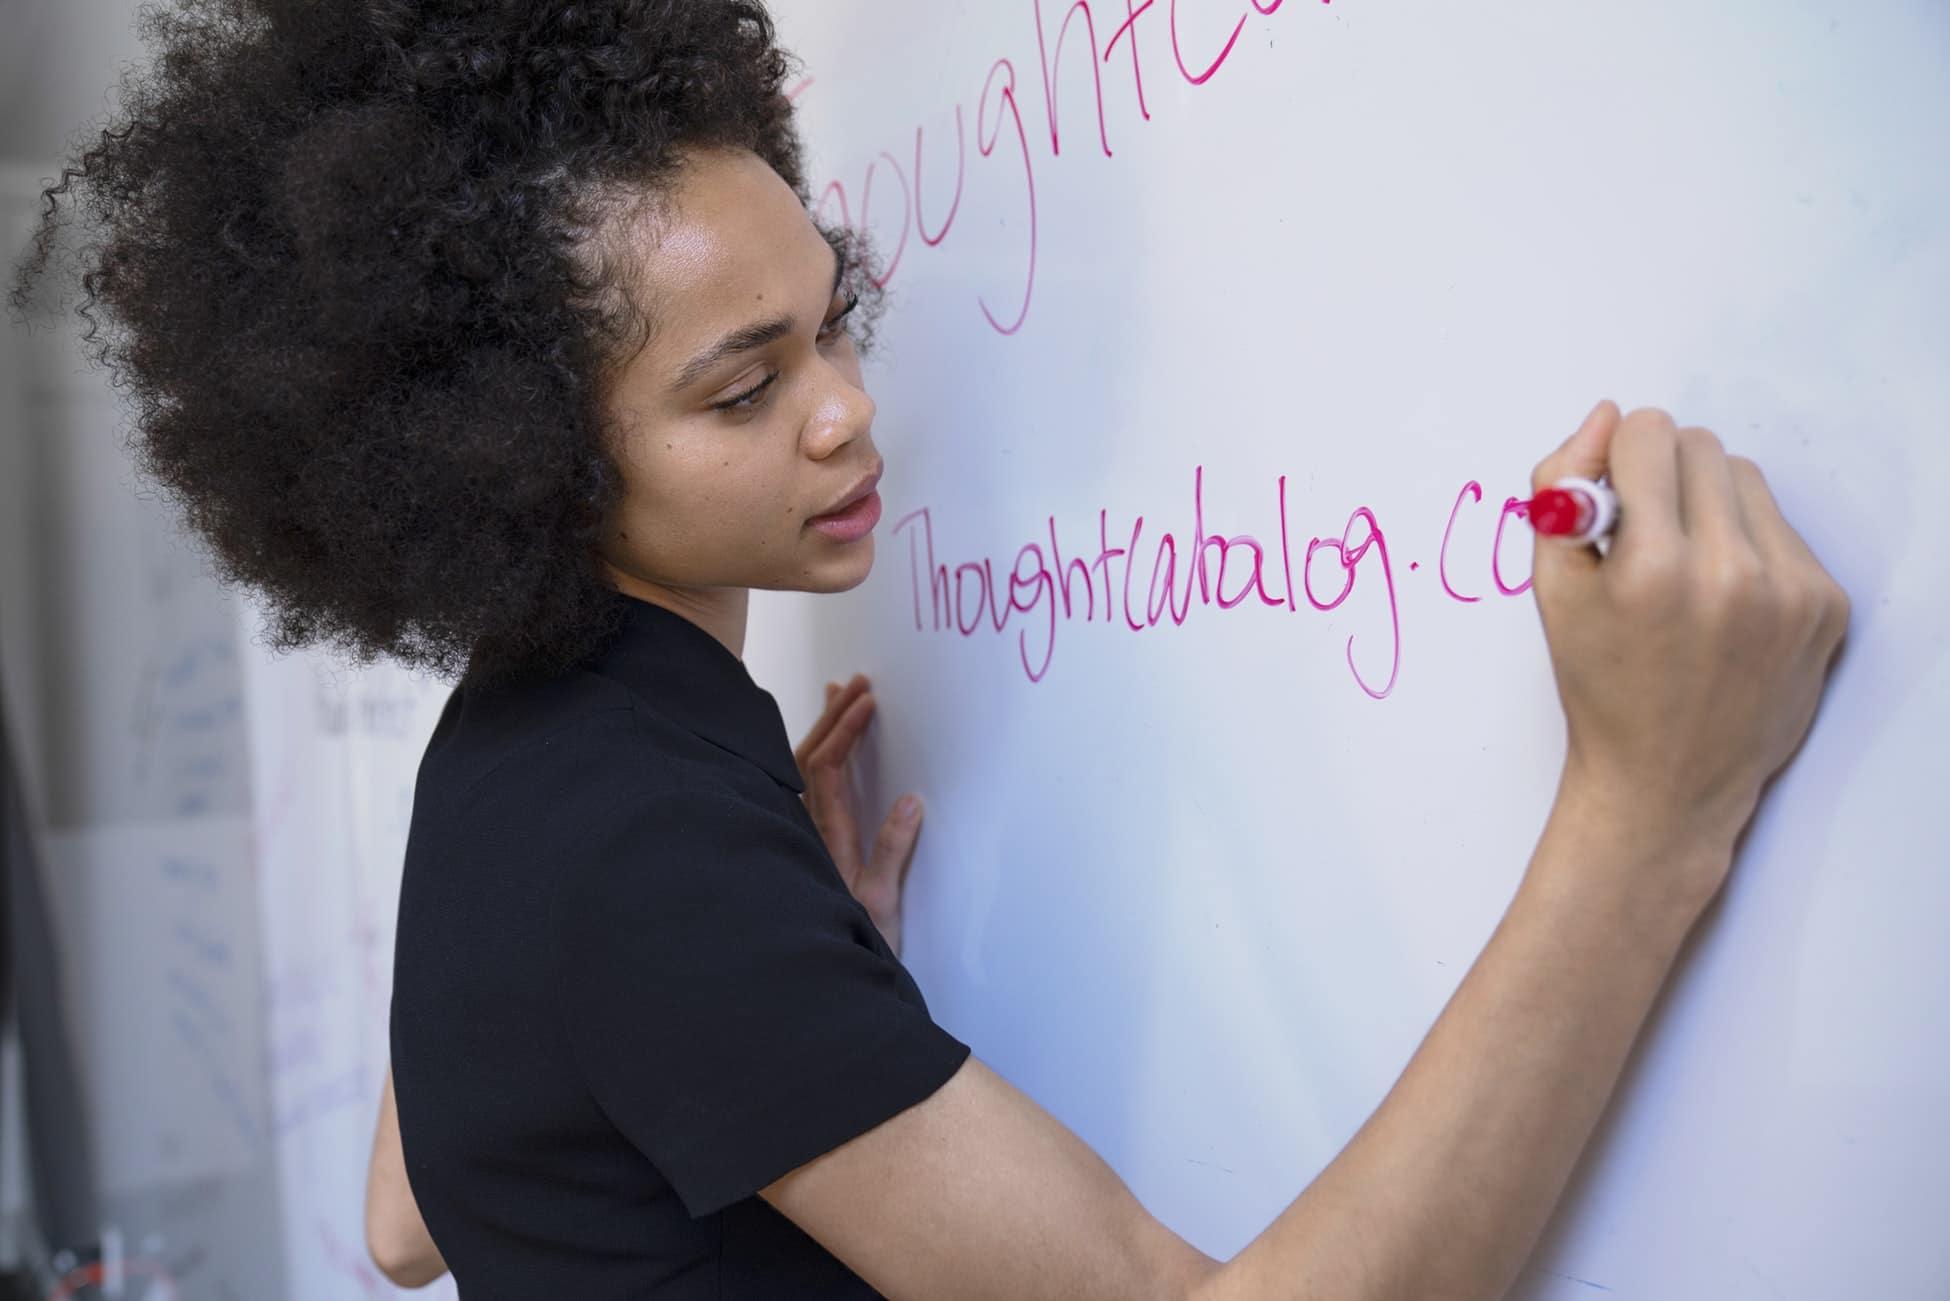 oughtCa
Thoughtcatalog.co